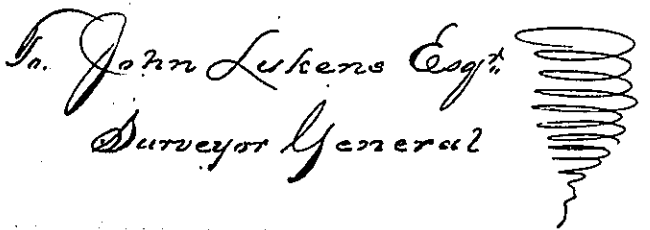 To. John Lukens Esqr.
Surveyor General